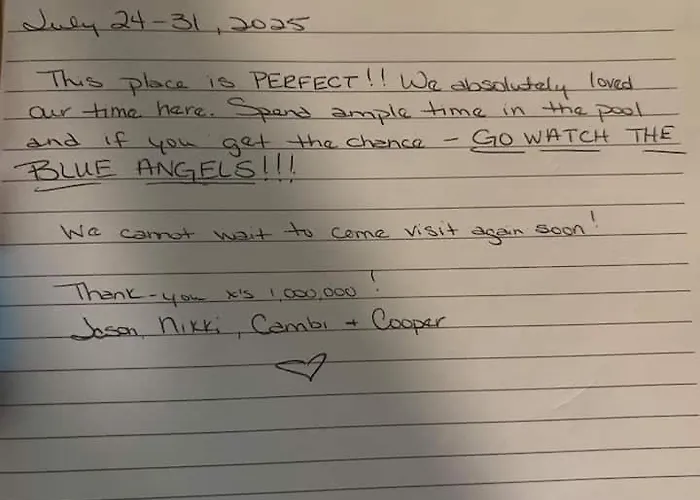 July 24-31, 2025
This place is PERFECT!! We absolutely loved
our time here. Spend ample time in the pool
and if you get the chance - GO WATCH THE
BLUE ANGELS!!!
We cannot wait to come visit again soon!
Thank-you x's 1,000,000!
Jason, Nikki, Cambi + Cooper